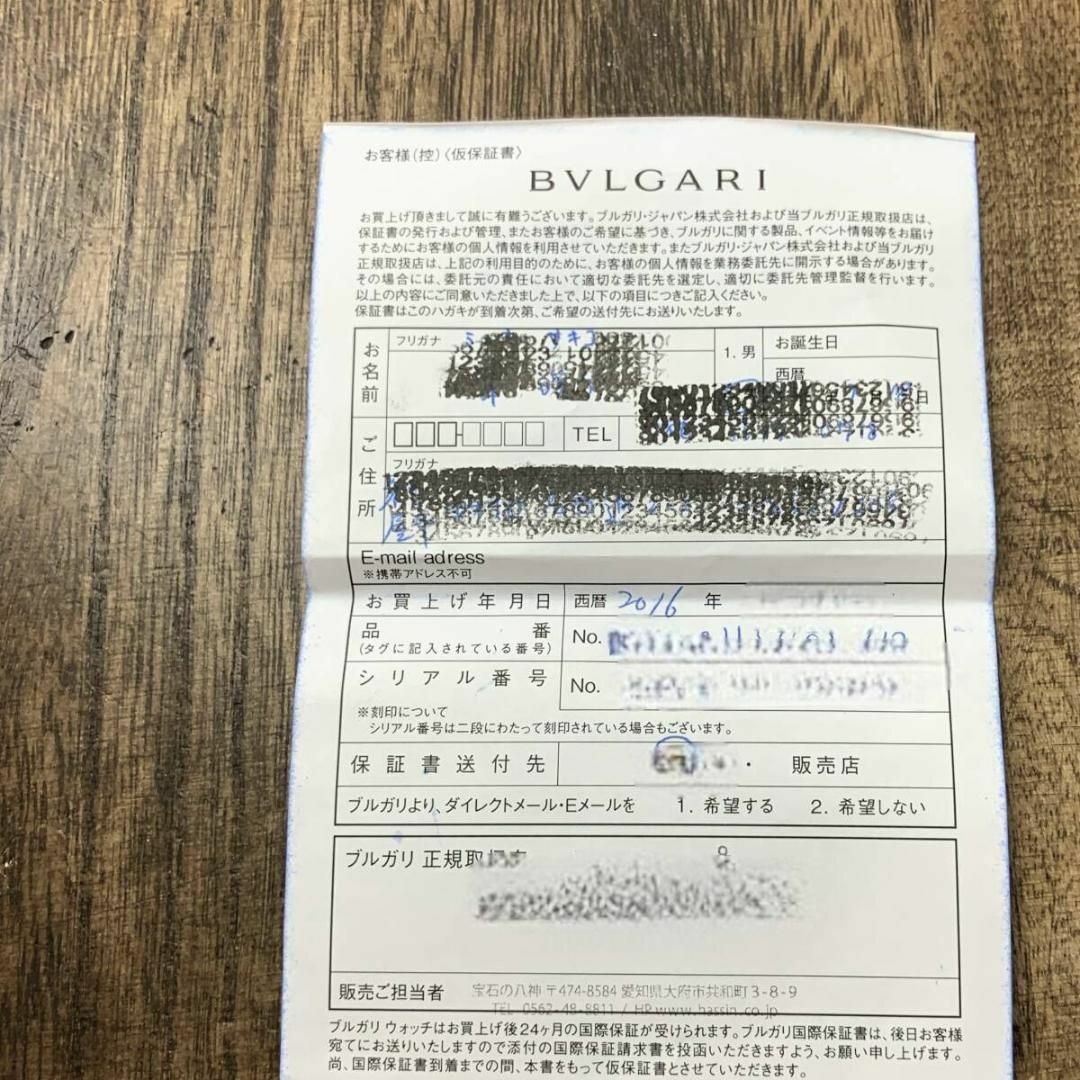 お客様(控)〈仮保証書〉
BVLGARI
お買上げ頂きまして誠に有難うございます。ブルガリ・ジャパン株式会社および当ブルガリ正規取扱店は、
保証書の発行および管理、またお客様のご希望に基づき、ブルガリに関する製品、イベント情報等をお届け
するためにお客様の個人情報を利用させていただきます。またブルガリ・ジャパン株式会社および当ブルガリ
正規取扱店は、上記の利用目的のために、お客様の個人情報を業務委託先に開示する場合があります。
その場合には、委託元の責任において適切な委託先を選定し、適切に委託先管理監督を行います。
以上の内容にご同意いただきました上で、以下の項目につきご記入ください。
保証書はこのハガキが到着次第、ご希望の送付先にお送りいたします。
お名前 フリガナ 1. 男 お誕生日
西暦
日
ご住所 TEL
フリガナ
E-mail adress
※携帯アドレス不可
お買上げ年月日 西暦 2016 年
品番 No.
(タグに記入されている番号)
シリアル番号 No.
※刻印について
シリアル番号は二段にわたって刻印されている場合もございます。
保証書送付先 ・ 販売店
ブルガリより、ダイレクトメール・Eメールを 1. 希望する 2. 希望しない
ブルガリ 正規取
販売ご担当者 宝石の八神 〒474-8584 愛知県大府市共和町3-8-9
TEL 0562-48-8811 / HP www.hassin.co.jp
ブルガリ ウォッチはお買上げ後24ヶ月の国際保証が受けられます。ブルガリ国際保証書は、後日お客様
宛てにお送りいたしますので添付の国際保証請求書を投函いただきますよう、お願い申し上げます。
尚、国際保証書到着までの間、本書をもって仮保証書とさせていただきます。